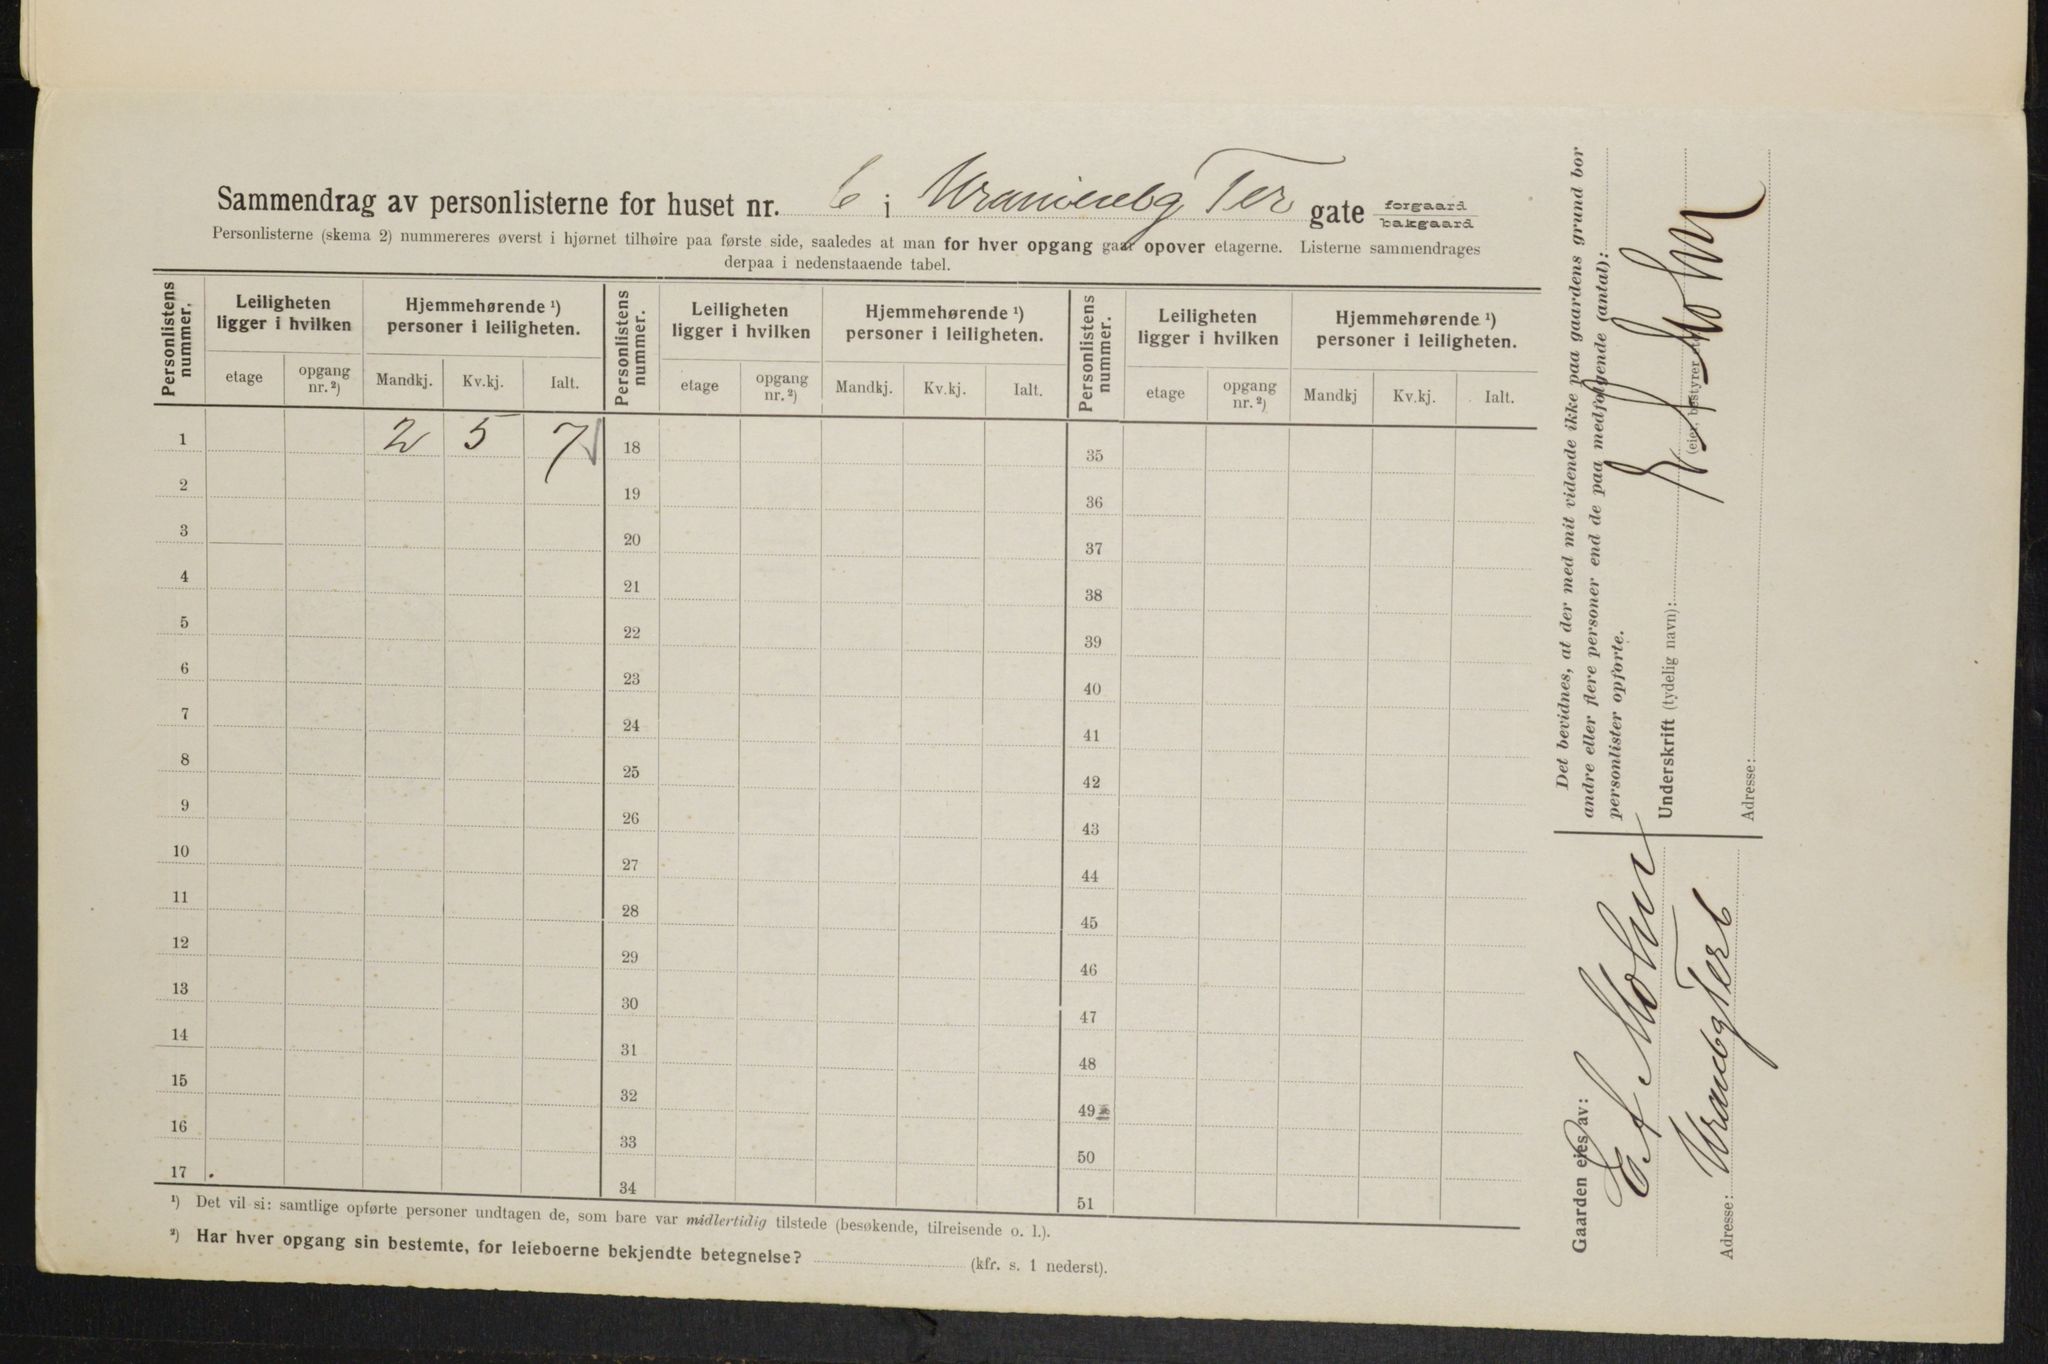 Sammendrag av personlisterne for huset nr. 6 i Uranienbg Ter gate forgaard
bakgaard
Personlisterne (skema 2) nummereres øverst i hjørnet tilhøire paa første side, saaledes at man for hver opgang gaar opover etagerne. Listerne sammendrages
derpaa i nedenstaaende tabel.
Personlistens nummer. Leiligheten ligger i hvilken Hjemmehørende ¹) personer i leiligheten. Personlistens nummer. Leiligheten ligger i hvilken Hjemmehørende ¹) personer i leiligheten. Personlistens nummer. Leiligheten ligger i hvilken Hjemmehørende ¹) personer i leiligheten.
etage opgang nr. ²) Mandkj. Kv.kj. Ialt. etage opgang nr. ²) Mandkj. Kv.kj. Ialt. etage opgang nr. ²) Mandkj Kv.kj. Ialt.
1 2 5 7 18 35
2 19 36
3 20 37
4 21 38
5 22 39
6 23 40
7 24 41
8 25 42
9 26 43
10 27 44
11 28 45
12 29 46
13 30 47
14 31 48
15 32 49
16 33 50
17 34 51
¹) Det vil si: samtlige opførte personer undtagen de, som bare var midlertidig tilstede (besøkende, tilreisende o. l.).
²) Har hver opgang sin bestemte, for leieboerne bekjendte betegnelse? (kfr. s. 1 nederst).
Det bevidnes, at der med mit vidende ikke paa gaardens grund bor
andre eller flere personer end de paa medfølgende (antal):
personlister opførte.
Underskrift (tydelig navn):
(eier, bestyrer
Adresse:
Gaarden eies av:
E f Mohn
Adresse: Uranbg Ter 6